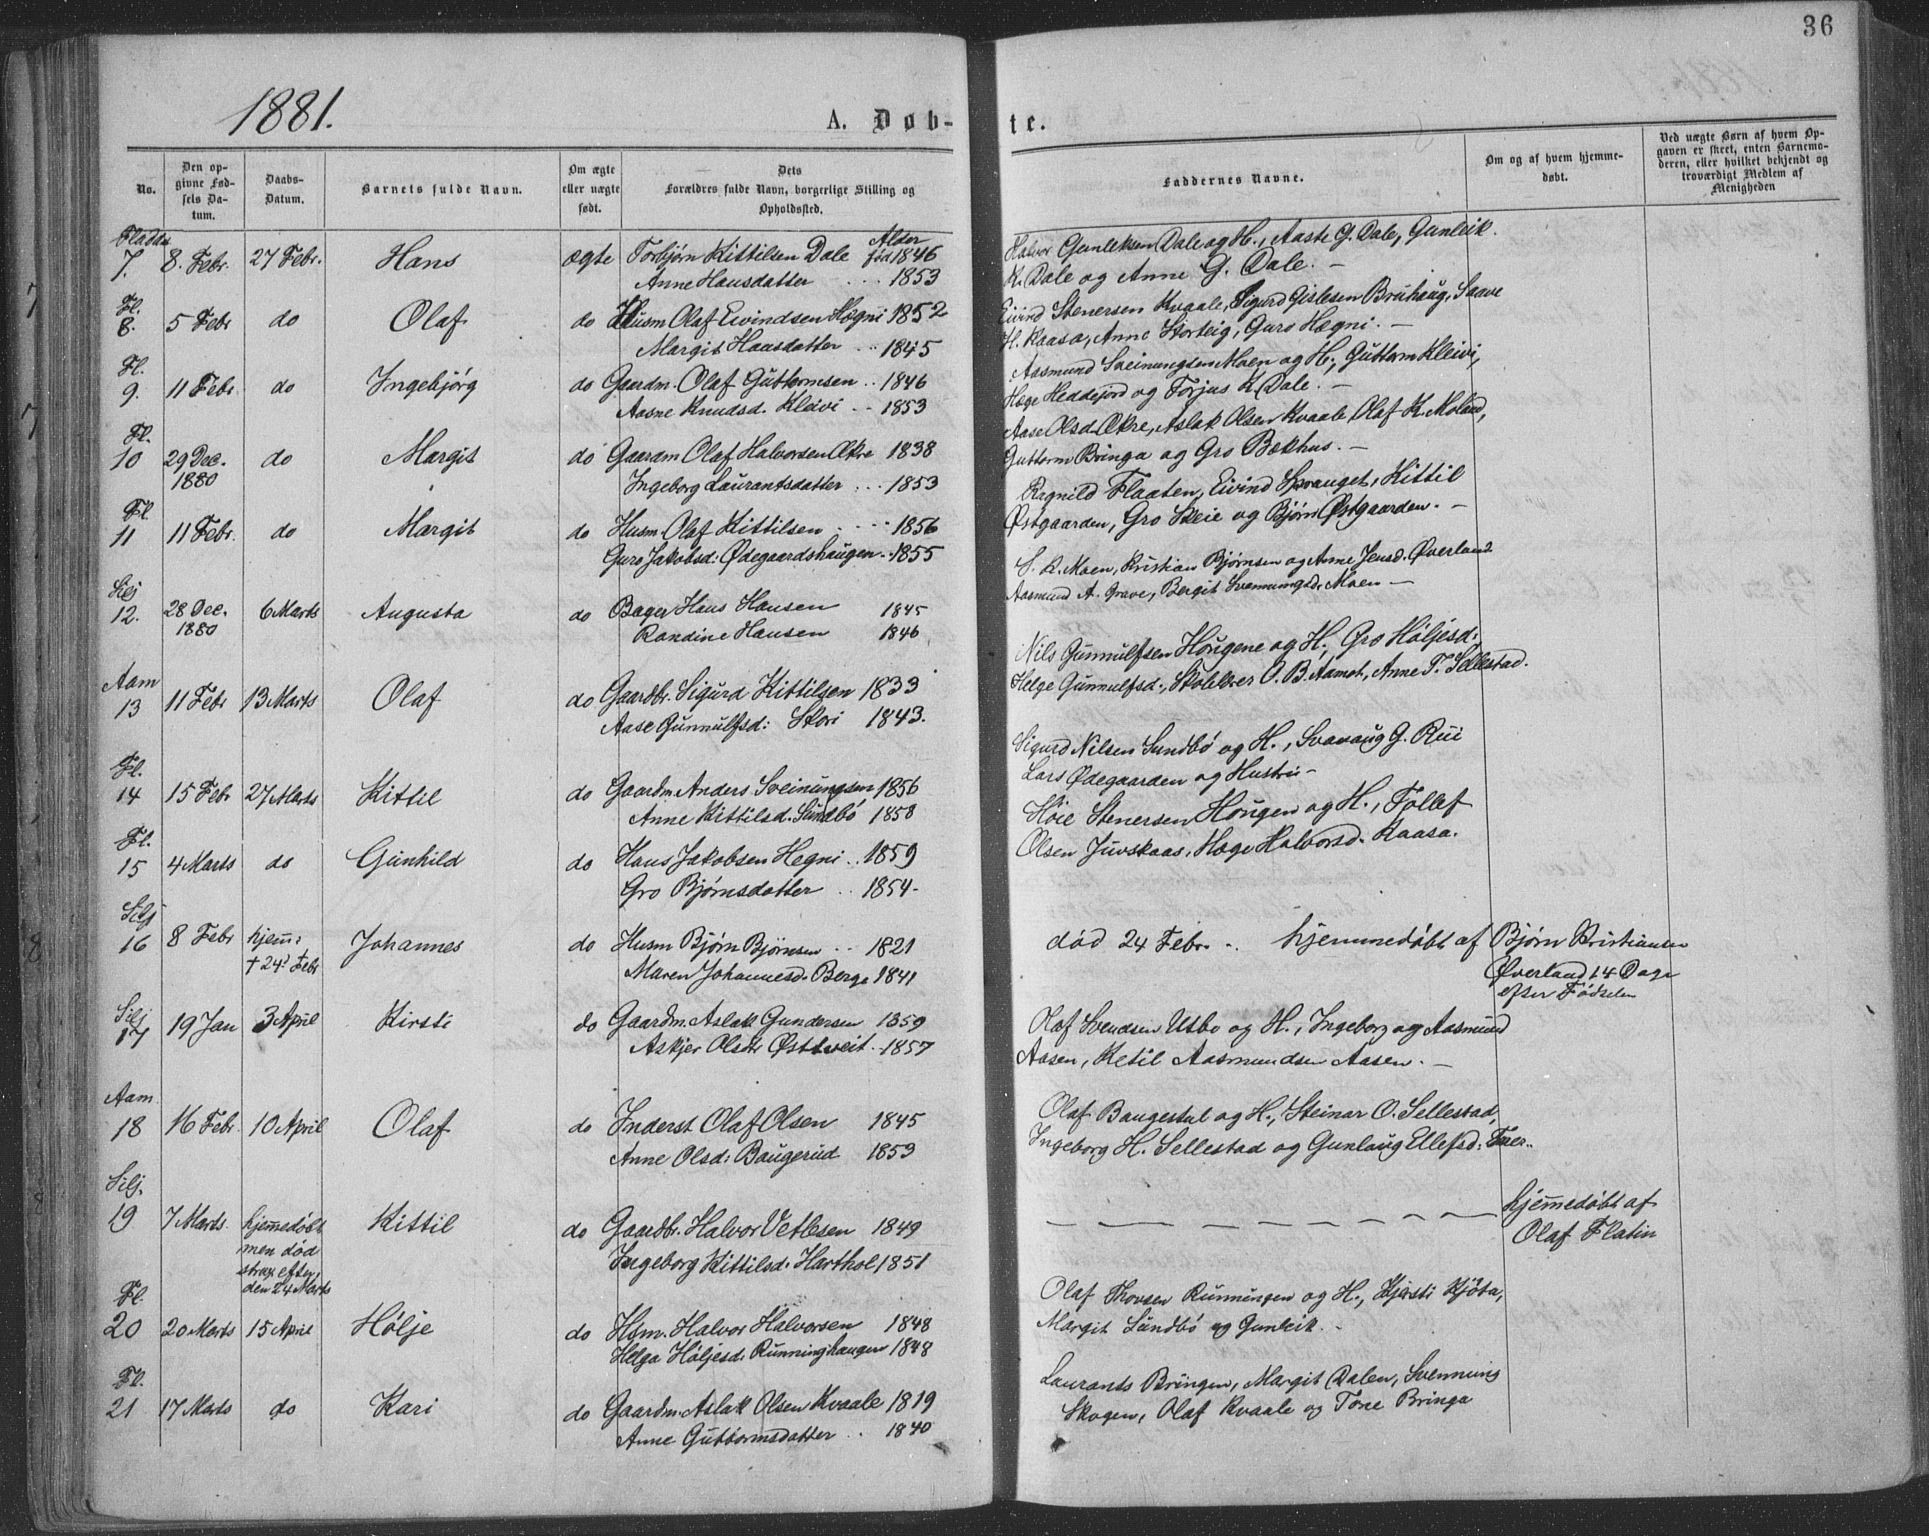 36
1881.
A. Døb-
te.
No.
Den op-
givne Fød-
sels Da-
tum.
Daabs-
Datum.
Barnets fulde Navn.
Om ægte
eller uægte
født.
Dets
Forældres fulde Navn, borgerlige Stilling og
Opholdssted.
Faddernes Navne.
Om og af hvem hjemme-
døbt.
Ved uægte Børn af hvem Op-
gaven er skeet, enten Barnemo-
deren, eller hvilket bekjendt og
troværdigt Medlem af
Menigheden
Alder
7. 8. Febr. 27 Febr. Hans ægte Torbjørn Kittilsen Dale født 1846
Anne Hansdatter 1853
Halvor Gunleksen Dale og H., Aaste G. Dale, Gunleik
K. Dale og Anne G. Dale. —
Fl.
8. 5 Febr do Olaf do Husm Olaf Eivindsen Hægni 1852
Margit Hansdatter 1845
Eivind Stenersen Kvgale, Sigurd Gislesen Bruhaug, Saave
H. Kaasa, Anne Storteig, Guro Hægni. —
Fl.
9. 11 Febr. do Ingebjørg do Gaardm. Olaf Guttormsen 1846
Aasne Knudsd. Kleivi 1853
Aasmund Sveinungsen Moen og H., Guttorm Kleivi,
Hæge Heddejord og Torjus K. Dale. —
Fl.
10 29 Dec. 1880 do Margit do Gaardm Olaf Halvorsen Økre 1838
Ingeborg Laurantsdatter 1853
Aase Olsd. Økre, Aslak Olsen Kvaale, Olaf K. Moland,
Guttorm Bringa og Gro Bækhus. —
Fl.
11 11 Febr. do Margit do Husm. Olaf Kittilsen 1856
Guro Jakobsd: Ødegaardshaugen 1855
Ragnild Flaaten, Eivind Sprauget, Kittil
Østgaarden, Gro Skeie og Bjørn Østgaarden. —
Silj
12. 28 Dec. 1880 6 Marts Augusta do Bager Hans Hansen 1845
Randine Hansen 1846
S. K. Moen, Kristian Bjørnsen og Anne Jensd. Øverland
Aasmund A. Grave, Bergit Svennungsd. Moen —
Aam
13 11 Febr 13 Marts Olaf do Gaardbr. Sigurd Kittilsen 1833
Aase Gunnulfsd: Stori 1843.
Nils Gunnulfsen Hougene og H., Gro Høljesd:
Helge Gunnulfsd:, Skolelærer O. B. Aamot, Anne T. Sellestad.
Fl.
14 15 Febr 27 Marts Kittil do Gaardm. Anders Sveinungsen 1856
Anne Kittilsd. Sundbø 1858
Sigurd Nilsen Sundbø og H., Svavaug G. Rui
Lars Ødegaarden og Hustru —
Fl.
15 4 Marts do Gunhild do Hans Jakobsen Hegni 1859
Gro Bjørnsdatter 1854
Høie Stenersen Hougen og H., Tollef
Olsen Juvskaas, Hæge Halvorsd. Kaasa.
Silj
16 8 Febr hjem:
† 24d Febr Johannes do Husm Bjørn Bjørnsen 1821
Maren Johannesd. Berge 1841
død 24 Febr. hjemmedøbt af Bjørn Kristiansen
Øverland 14 Dage
efter Fødselen
Silj
17 19 Jan 3 April Kirsti do Gaardm. Aslak Gundersen 1859
Askjer Olsdr Østtveit 1857
Olaf Svendsen Utbø og H., Ingeborg og Aasmund
Aasen, Ketil Aasmundsen Aasen. —
Aam.
18 16 Febr. 10 April Olaf do Inderst Olaf Olsen 1845
Anne Olsd: Baugerud 1853
Olaf Baugestul og H., Steinar O. Sellestad,
Ingeborg H. Sellestad og Gunlaug Ellefsd:
Silj.
19 7 Marts. hjemmedøbt
men død
strax efter,
den 24 Marts Kittil do Gaardbr. Halvor Vetlesen 1849
Ingeborg Kittilsd. Harthol 1851
hjemmedøbt af
Olaf Flatin
Fl.
20 20 Marts 15 April Hølje do Hsm. Halvor Halvorsen 1848
Helga Høljesd: Runninghaugen 1848
Olaf Thovsen Runningen og H., Kjersti Kjøta,
Margit Sundbø og Gunleik.
Fl.
21 17 Marts do Kari do Gaardm. Aslak Olsen Kvaale 1819
Anne Guttormsdatter 1840
Laurants Bringen, Margit Dalen, Svennung
Skogen, Olaf Kvaale og Tone Bringa